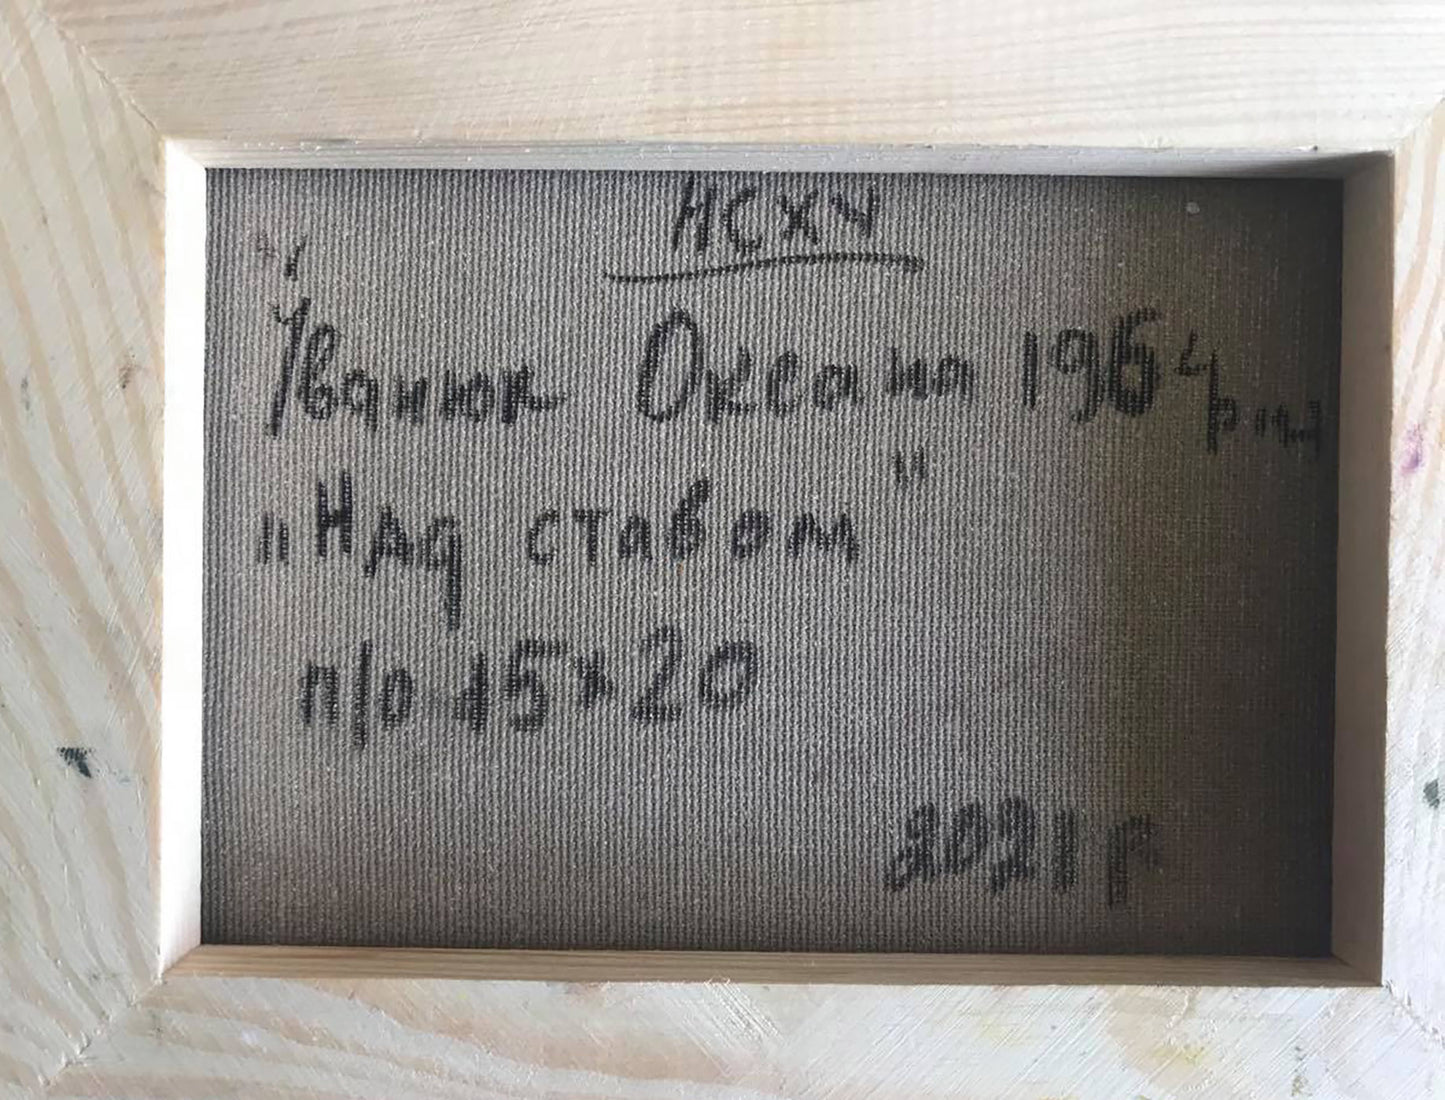 НСХУ
Іванюк Оксана 1964
"Над ставом"
п/о 15x20
2021 г